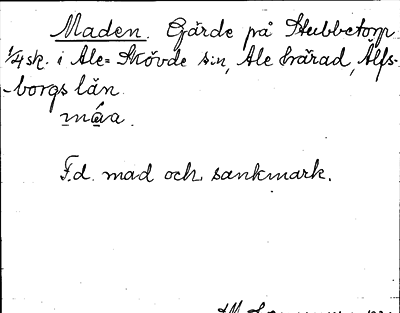 Maden. Gärde på Stubbetorp
1/4 sk. i Ale-Skövde sn, Ale härad, Älfs-
-borgs län.
máa.
F.d. mad och sankmark.